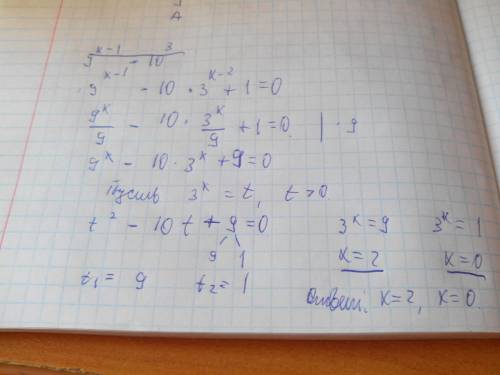 A
9^{x-1} - 10^3
9^{x-1} - 10 · 3^{x-2} + 1 = 0
9^x/9 - 10 · 3^x/9 + 1 = 0 | · 9
9^x - 10 · 3^x + 9 = 0
Пусть 3^x = t, t > 0
t^2 - 10t + 9 = 0
9 1
t_1 = 9 t_2 = 1
3^x = 9 3^x = 1
x = 2 x = 0
Ответ: x = 2, x = 0.